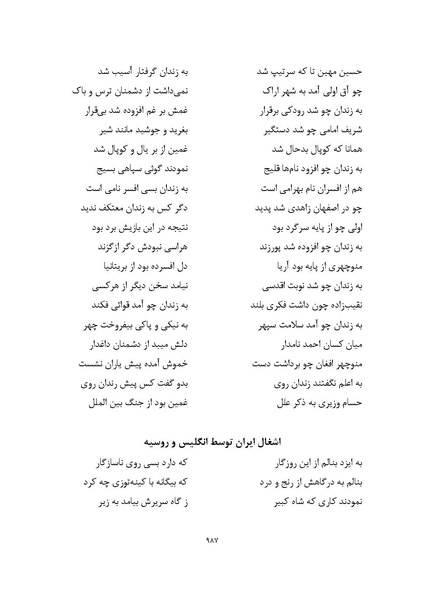 حسین مهین تا که سرتیپ شد به زندان گرفتار آسیب شد
چو آق اولی آمد به شهر اراک نمی‌داشت از دشمنان ترس و باک
به زندان چو شد رودکی برقرار غمش بر غم افزوده شد بی‌قرار
شریف امامی چو شد دستگیر بغرید و جوشید مانند شیر
همانا که کوپال بدحال شد غمین از بر یال و کوپال شد
به زندان چو افزود نام‌ها قلیچ نمودند گوئی سپاهی بسیج
هم از افسران نام بهرامی است به زندان بسی افسر نامی است
چو در اصفهان زاهدی شد پدید دگر کس به زندان معتکف ندید
اولی چو از پایه سرگرد بود نتیجه در این بازیش برد بود
به زندان چو افزوده شد پورزند هراسی نبودش دگر ازگزند
منوچهری از پایه بود آریا دل افسرده بود از بریتانیا
به زندان چو شد نوبت اقدسی نیامد سخن دیگر از هرکسی
نقیب‌زاده چون داشت فکری بلند به زندان چو آمد قوائی فکند
به زندان چو آمد سلامت سپهر به نیکی و پاکی بیفروخت چهر
میان کسان احمد نامدار دلش میبد از دشمنان داغدار
منوچهر افغان چو برداشت دست خموش آمده پیش یاران نشست
به اعلم نگفتند زندان روی بدو گفت کس پیش رندان روی
حسام وزیری به ذکر علل غمین بود از جنگ بین الملل
اشغال ایران توسط انگلیس و روسیه
به ایزد بنالم از این روزگار که دارد بسی روی ناسازگار
بنالم به درگاهش از رنج و درد که بیگانه با کینه‌توزی چه کرد
نمودند کاری که شاه کبیر ز گاه سریرش بیامد به زیر
۹۸۷